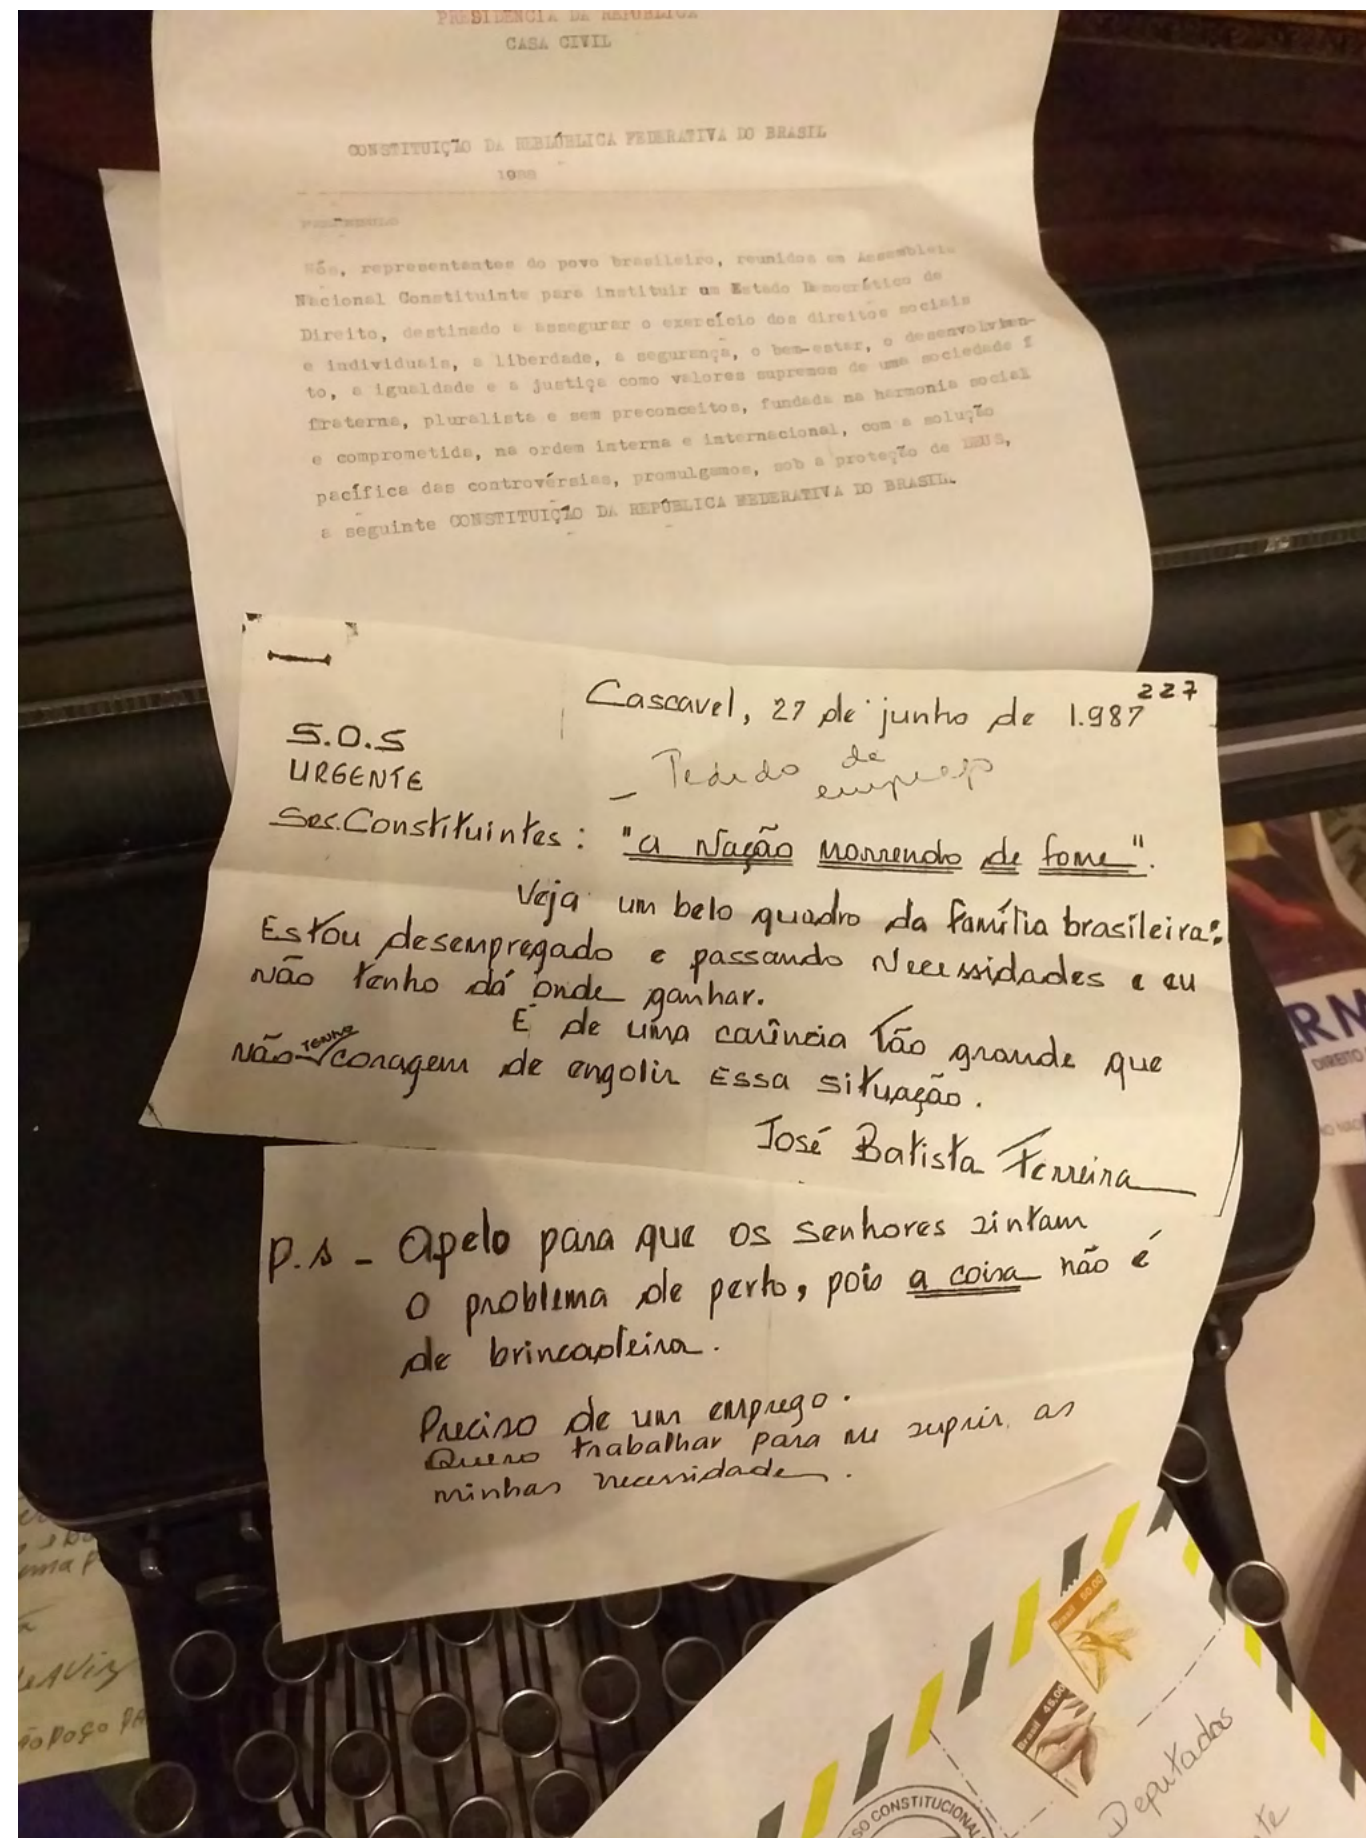 PRESIDENCIA DA REPUBLICA
CASA CIVIL
CONSTITUIÇÃO DA REBLÚBLICA FEDERATIVA DO BRASIL
1988
PREÂMBULO
Nós, representantes do povo brasileiro, reunidos em Assembleia
Nacional Constituinte para instituir um Estado Democrático de
Direito, destinado a assegurar o exercício dos direitos sociais
e individuais, a liberdade, a segurança, o bem-estar, o desenvolvimen-
to, a igualdade e a justiça como valores supremos de uma sociedade f
fraterna, pluralista e sem preconceitos, fundada na harmonia social
e comprometida, na ordem interna e internacional, com a solução
pacífica das controvérsias, promulgamos, sob a proteção de DEUS,
a seguinte CONSTITUIÇÃO DA REPÚBLICA FEDERATIVA DO BRASIL.
227
Cascavel, 27 de junho de 1.987
S.O.S
URGENTE
_ Pedido de
emprego
Srs. Constituintes: "a Nação morrendo de fome".
Veja um belo quadro da família brasileira:
Estou desempregado e passando Necessidades e eu
não tenho dá onde ganhar.
E de uma carência tão grande que
não tenho coragem de engolir Essa situação.
José Batista Ferreira
P.s - Apelo para que os senhores sintam
o problema de perto, pois a coisa não é
de brincadeira.
Preciso de um emprego.
Quero trabalhar para me suprir as
minhas necessidades.
Brasil 50.00
Brasil 45.00
Deputados
CONSTITUCIONAL
RN
DIREITO